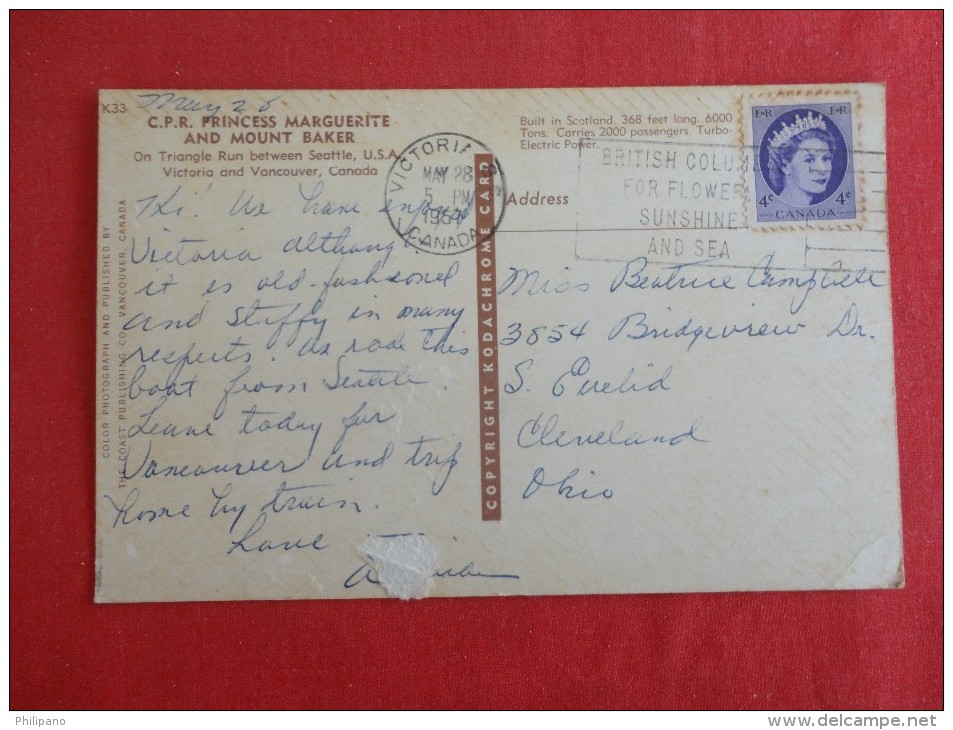 K33
May 28
C.P.R. PRINCESS MARGUERITE
AND MOUNT BAKER
On Triangle Run between Seattle, U.S.A.
Victoria and Vancouver, Canada
Built in Scotland. 368 feet long. 6000
Tons. Carries 2000 passengers. Turbo-
Electric Power.
VICTORIA
MAY 28
5 PM
CANADA
BRITISH COLUM
FOR FLOWER
SUNSHINE
AND SEA
E R E R
4c 4c
CANADA
Address
Hi. We have enjoyed
Victoria although
it is old-fashioned
and stuffy in many
respects. We rode this
boat from Seattle.
Leave today for
Vancouver and trip
home by train.
Love
Miss Beatrice Campbell
3854 Bridgeview Dr.
S. Euclid
Cleveland
Ohio
COLOR PHOTOGRAPH AND PUBLISHED BY
THE COAST PUBLISHING CO. VANCOUVER, CANADA
COPYRIGHT KODACHROME CARD
Philipano
www.delcampe.net